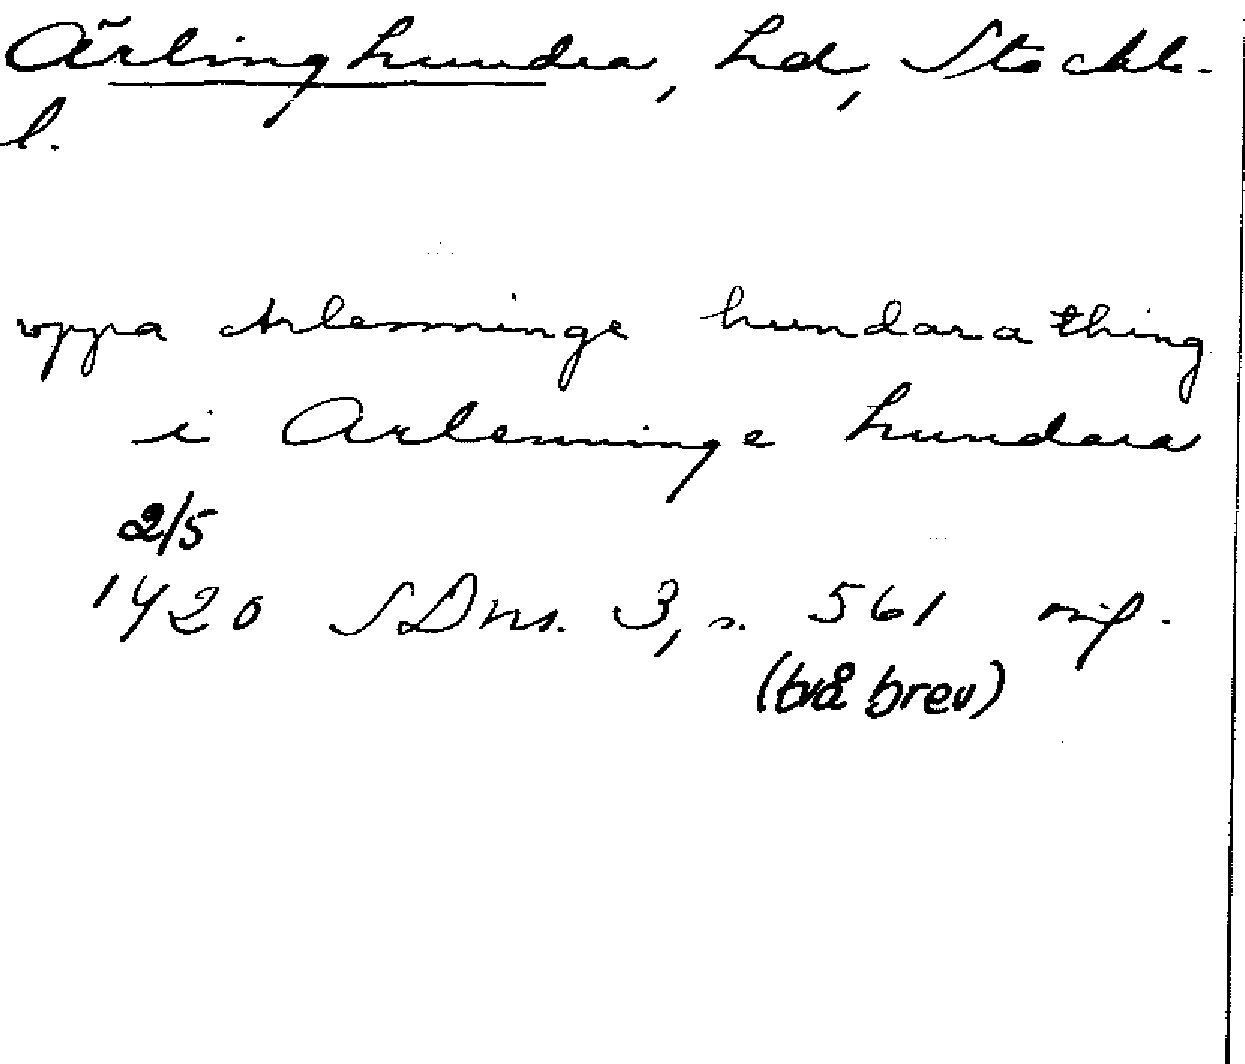 Ärlinghundra, hd, Stockh.
l.
oppa Arlenninge hundara thing
i Arlenninge hundara
2/5
1420 SDns. 3, s. 561 nif.
(två brev)